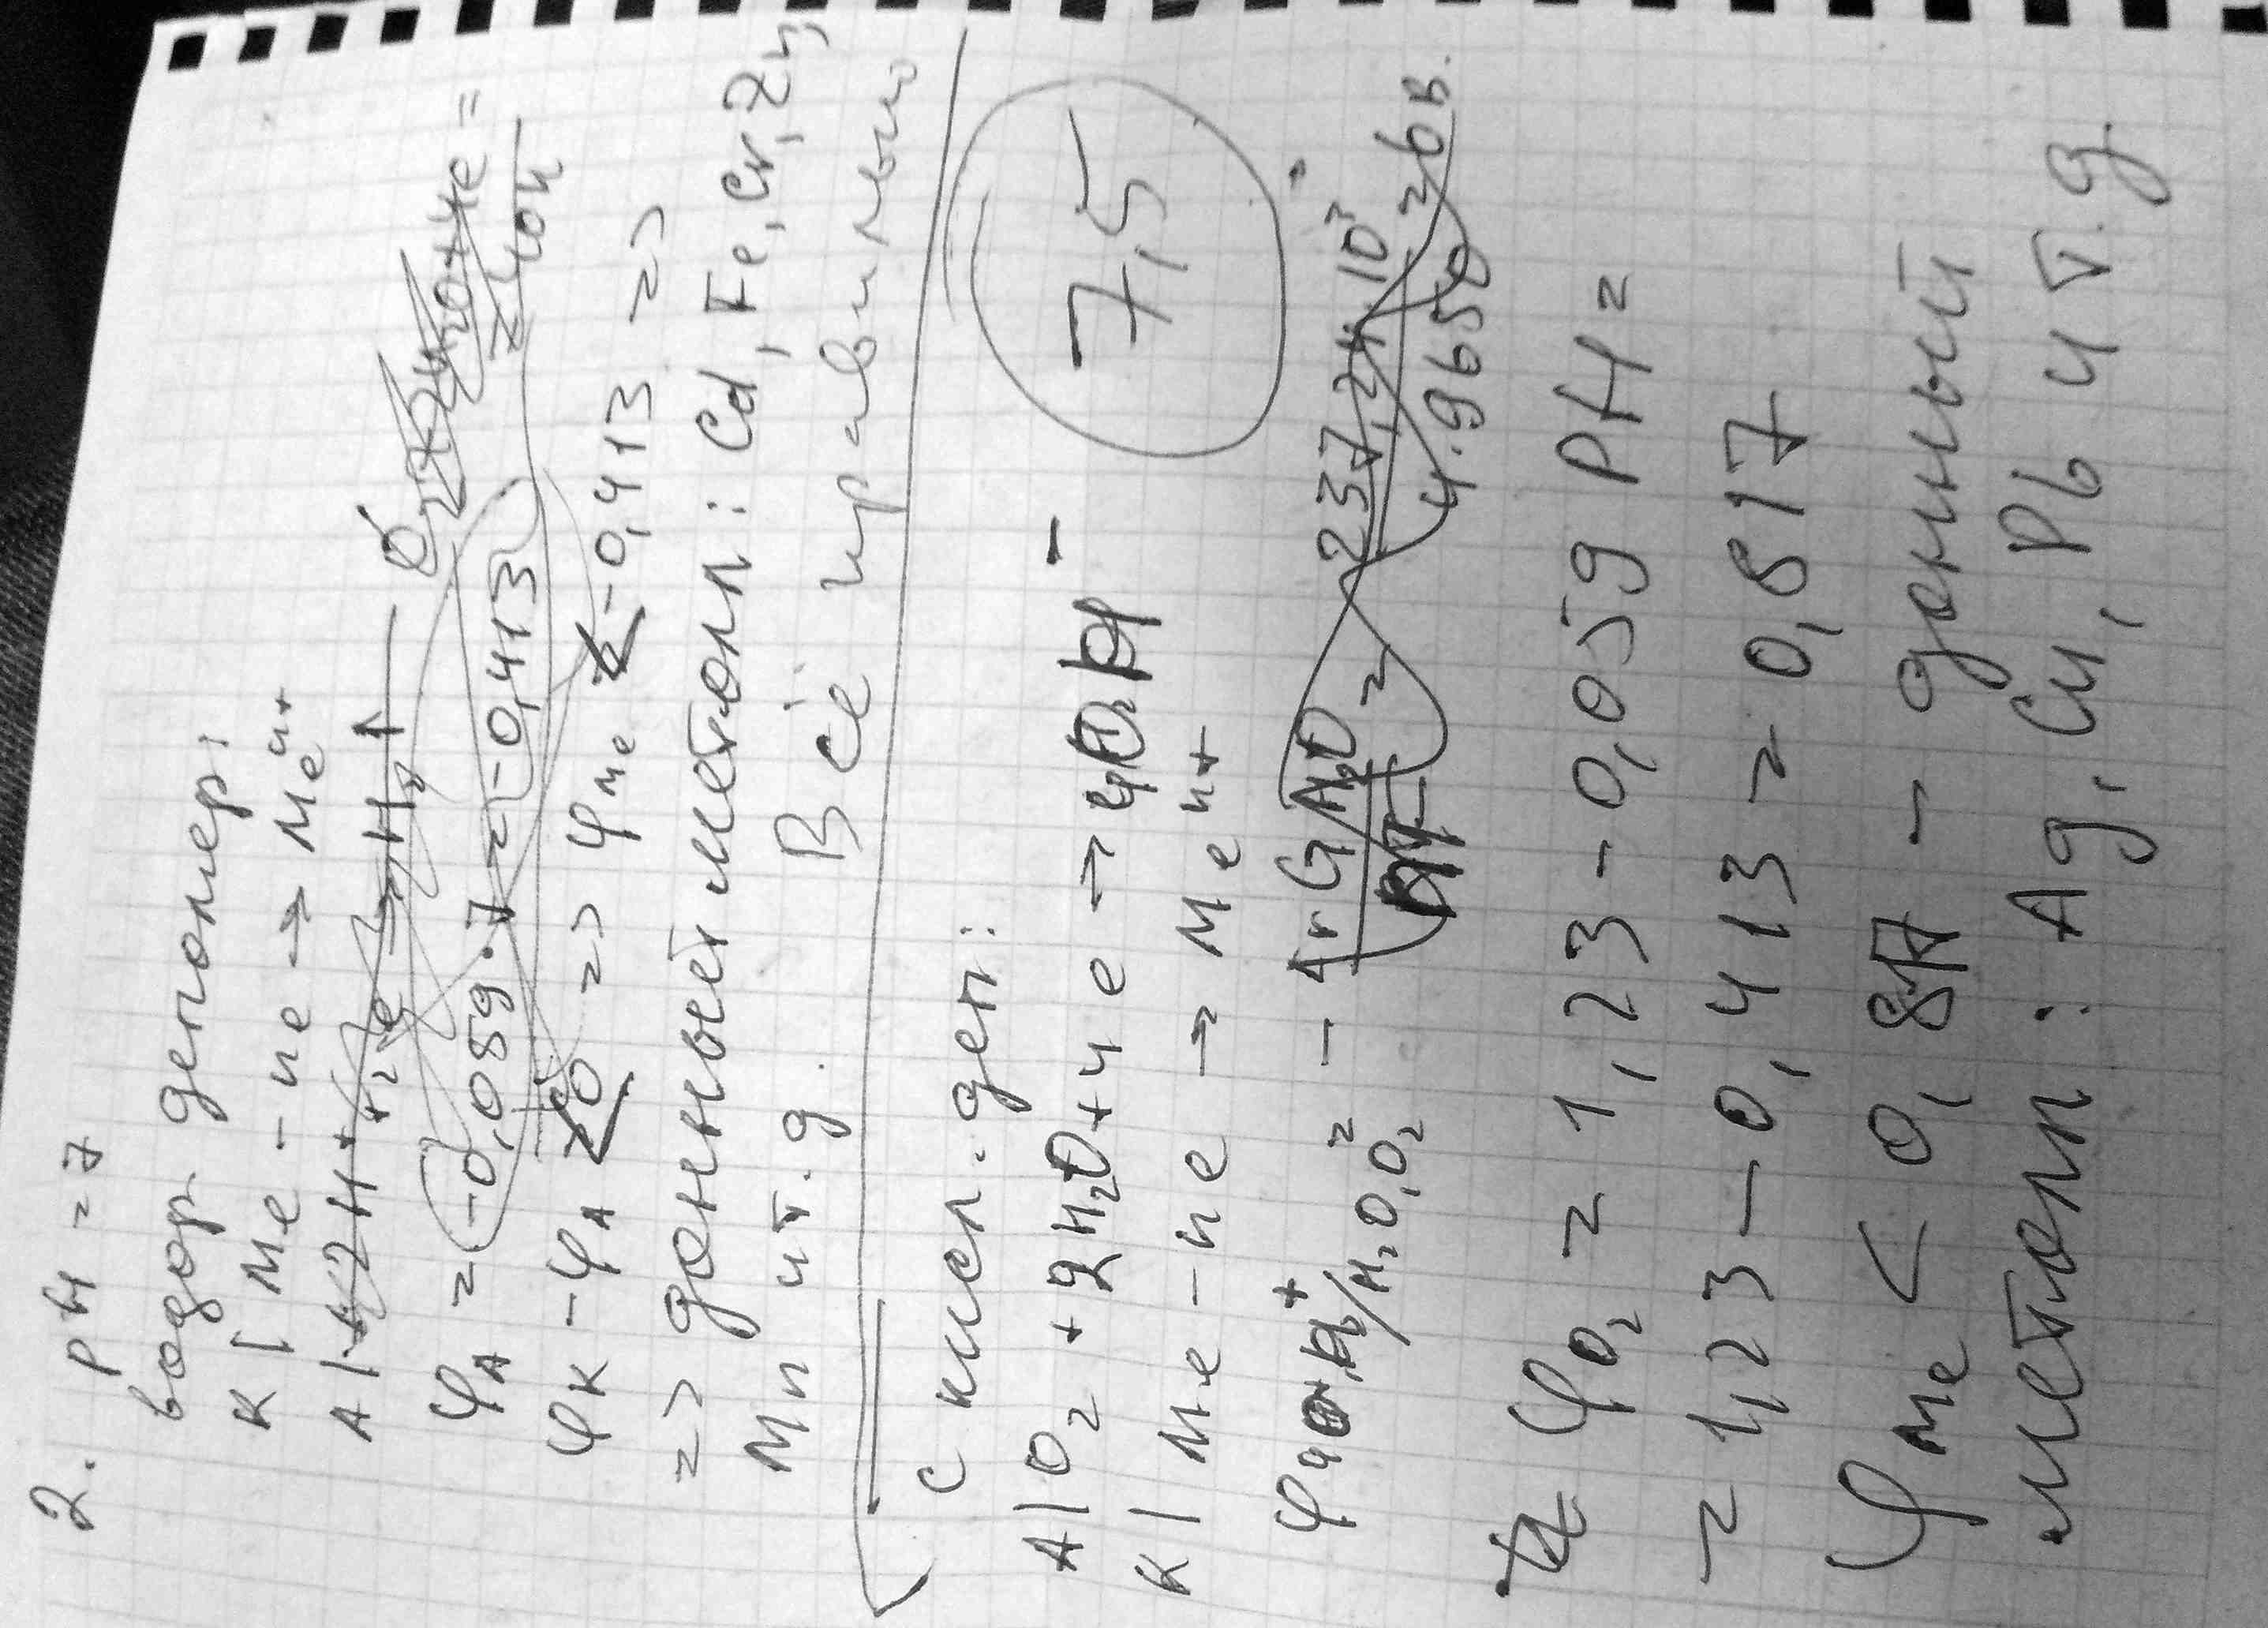 2. pH = 7
водор. деполяр:
К | Me - ne → Meⁿ⁺
А | 2H⁺ + 2e → H₂↑
φA = -0,059 · 7 = -0,413
φK - φA < 0 => φMe < -0,413 =>
=> данный металл: Cd, Fe, Cr, Zn,
Mn и т. д.
Всё правильно
С кисл. деп:
7,5
А | O₂ + 2H₂O + 4e → 4OH⁻
К | Me - ne → Meⁿ⁺
237,24 · 10³
4 · 9650
φO₂ = 1,23 - 0,059 pH =
= 1,23 - 0,413 = 0,817
φMe < 0,817 - данный
металл: Ag, Cu, Pb и т. д.